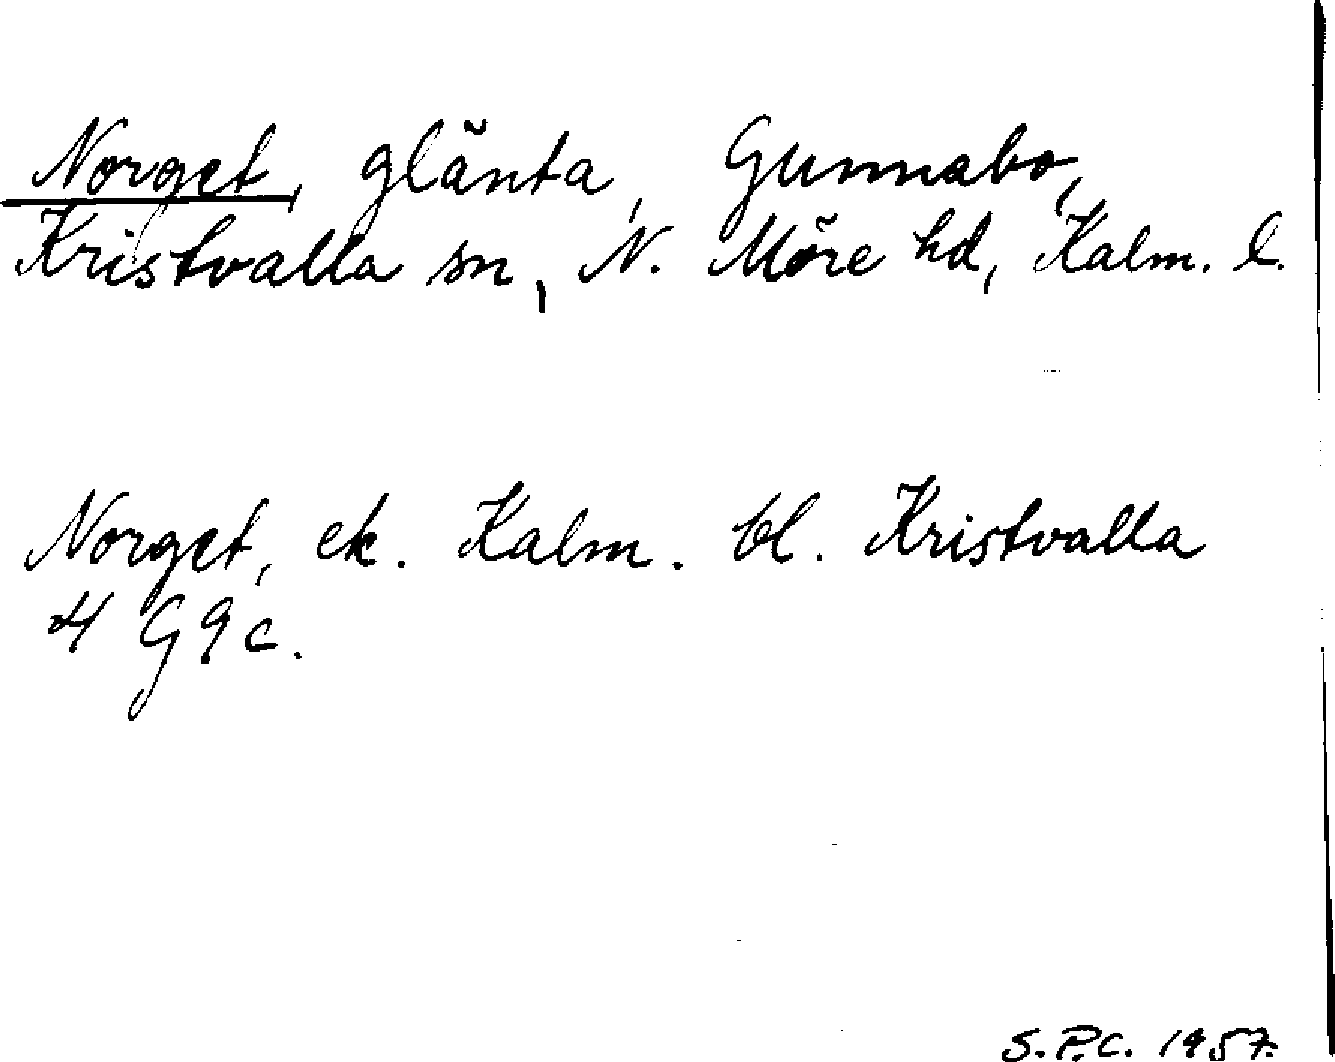 Norget, glänta, Gunnabo,
Kristvalla sn, N. Möre hd, Kalm. l.
Norget, ek. Kalm. bl. Kristvalla
4 G 9 c.
S.P.C. 1957